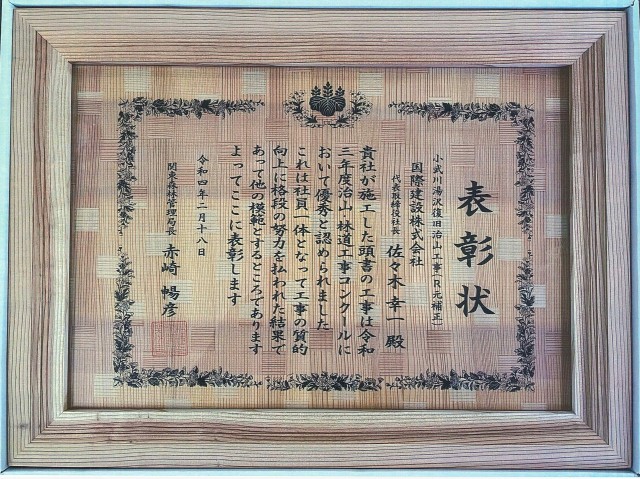 表彰状
小武川湯沢復旧治山工事(R元補正)
国際建設株式会社
代表取締役社長 佐々木幸一殿
貴社が施工した頭書の工事は令和
三年度治山・林道工事コンクールに
おいて優秀と認められました
これは社員一体となって工事の質的
向上に格段の努力を払われた結果で
あって他の模範とするところであります
よってここに表彰します
令和四年二月十八日
関東森林管理局長 赤崎暢彦